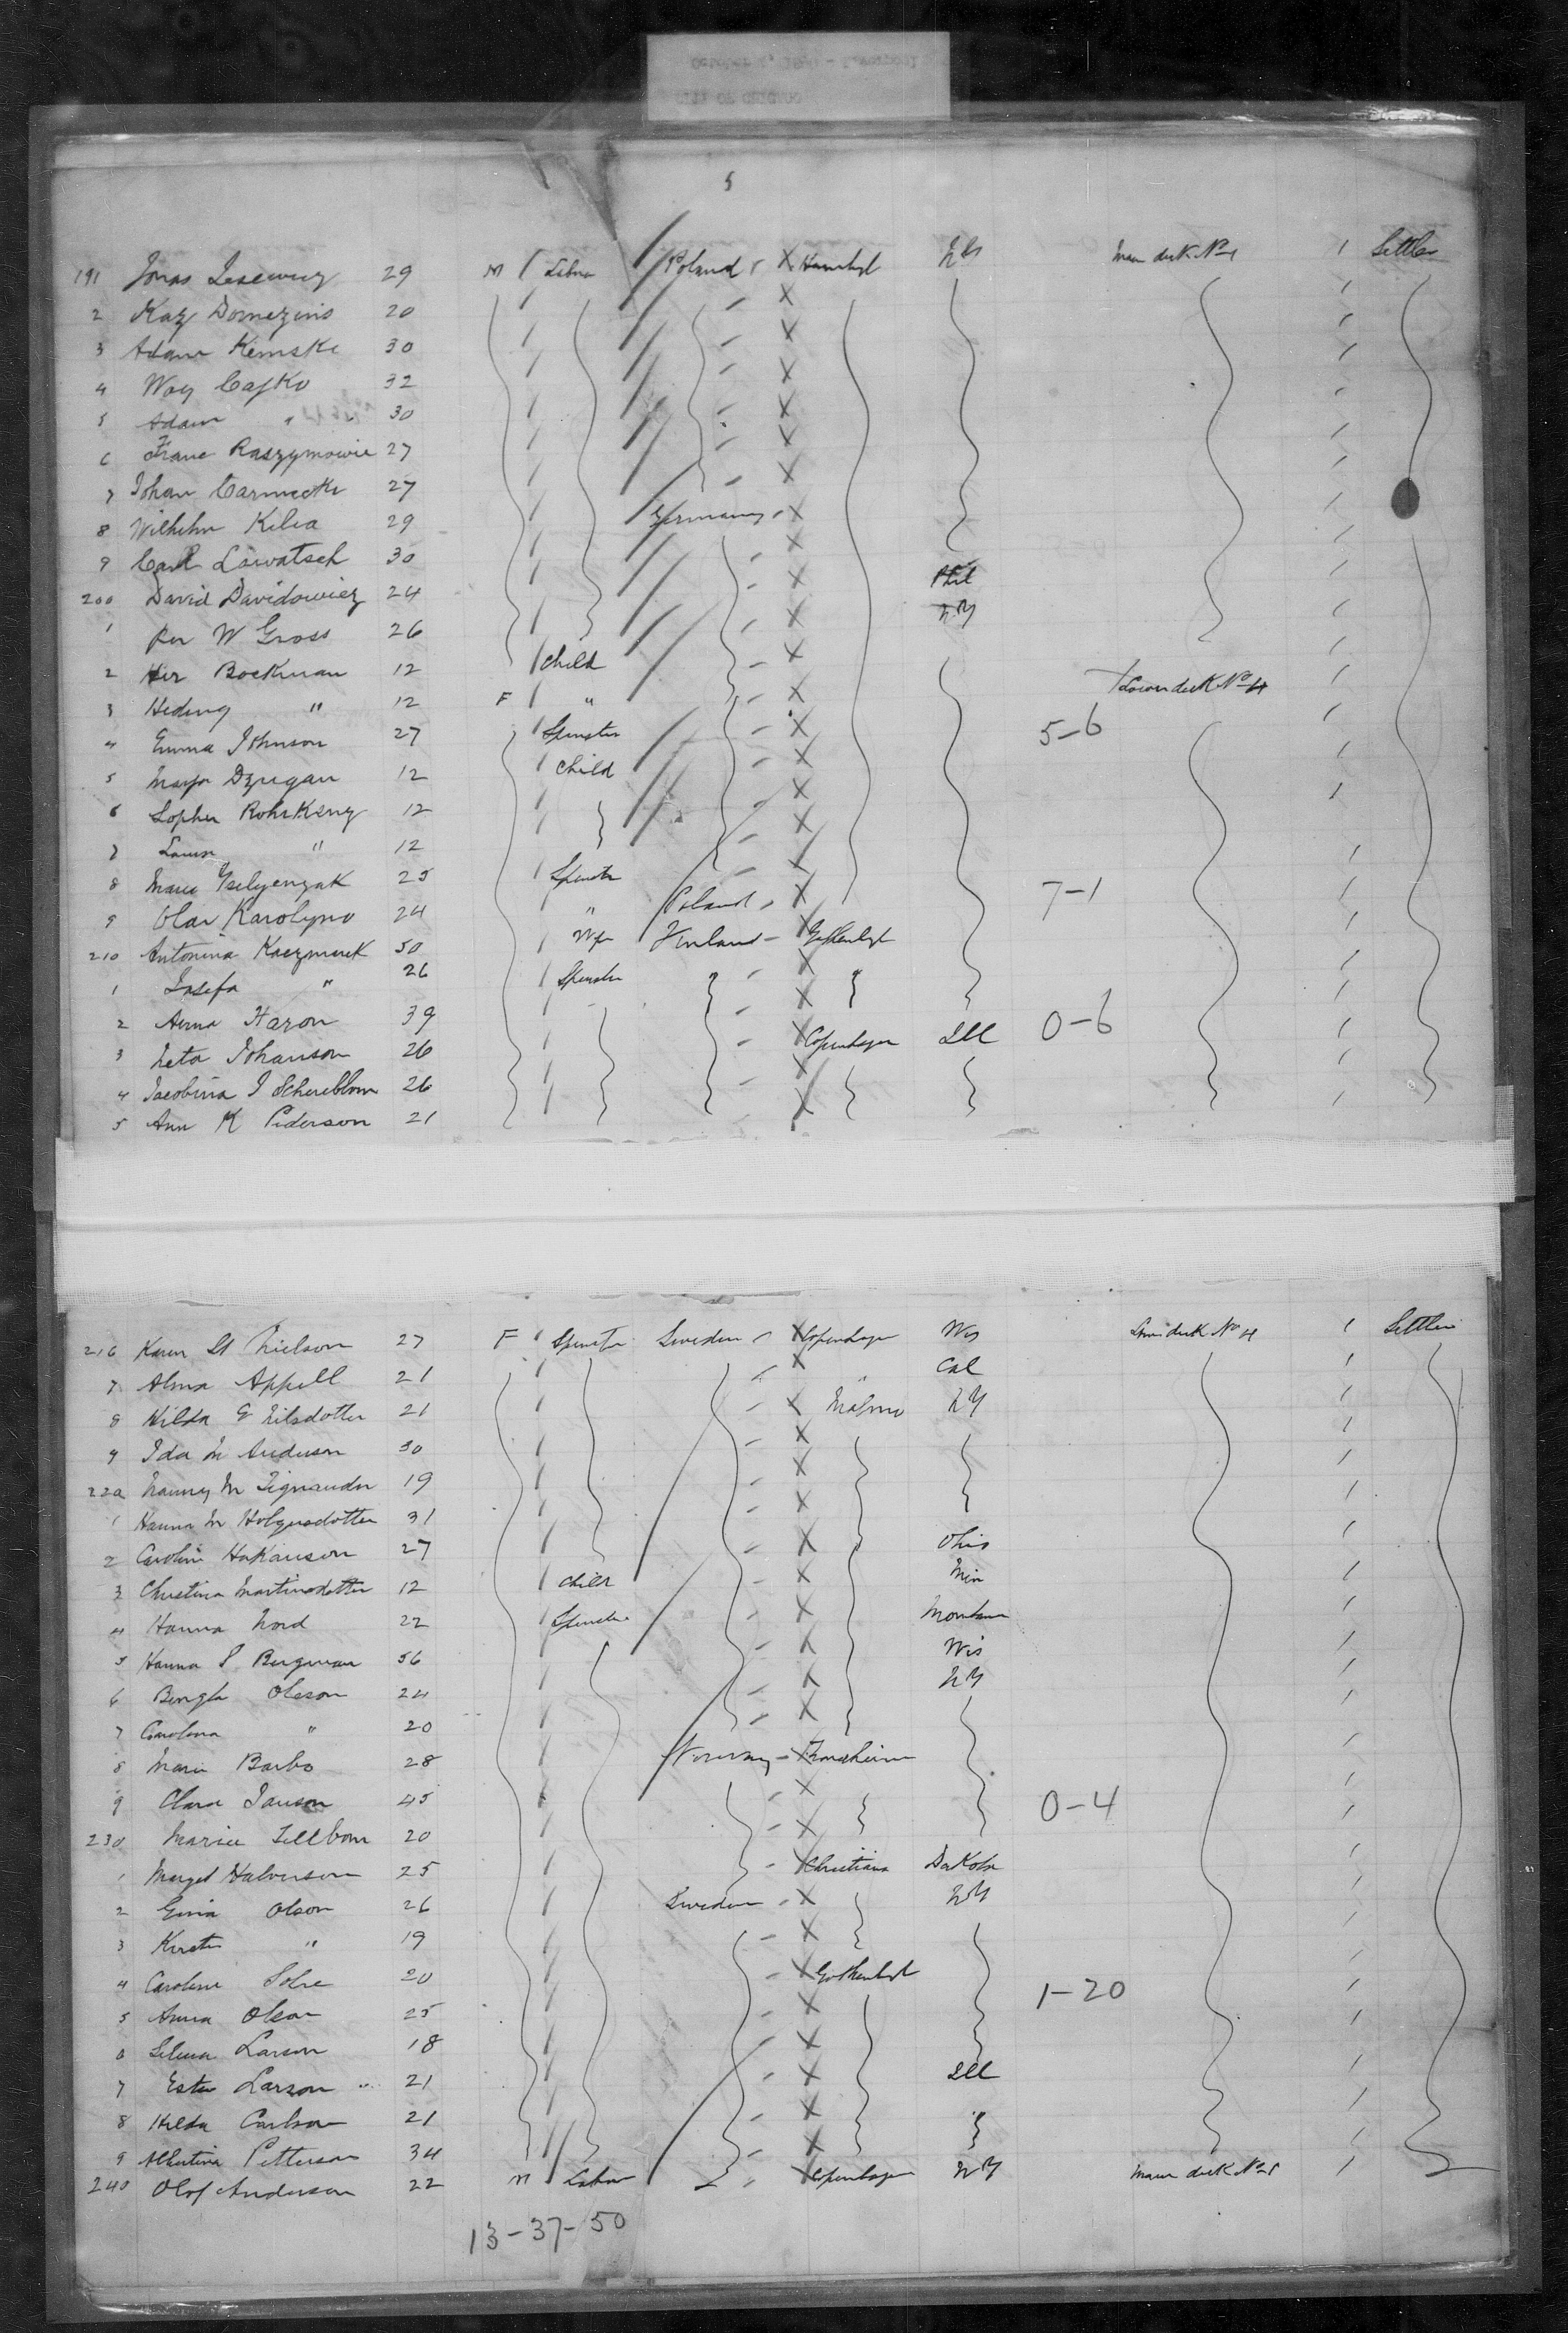 5
191 Jonas Lesewicz 29 M / Labor / Poland X Hamburg NY Main deck No 1 / Settler
2 Kaz Domezins 20
3 Adam Kemski 30
4 Woy Cafko 32
5 Adam " 30
6 Franc Raszymowie 27
7 Johan Carnecki 27
8 Wilhelm Kilia 29 Germany
9 Carl Lawatsch 30
200 David Davidowicz 24 Phil
1 Per W Gross 26 NY
2 Her Bockman 12 Child
3 Hedwig " 12 F " Lower deck No 4
4 Emma Johnson 27 Spinster 5-6
5 Marya Dzugan 12 Child
6 Sopher Rohrkeny 12
7 " 12
8 Maria 25 Spinster
9 Olar Karolyno 24 " Poland 7-1
210 Antonina Kaczmarek 50 Wife Finland Gothenbg
1 Josefa " 26 Spinster
2 Anna Haron 39
3 Neta Johanson 26 Copenhagen Ill 0-6
4 Jacobina J Schereblom 26
5 Ann K Pederson 21
216 Karen St Nielson 27 F / Spinster Sweden X Copenhagen Wis Lower deck No 4 / Settler
7 Alma Appell 21 " Cal
8 Hilda E Nilsdotter 21 Malmo NY
9 Ida M Anderson 30
220 Nanny M Tignander 19
1 Hanna M Holgersdotter 31
2 Carolin Hakanson 27 Ohio
3 Christina Martinsdotter 12 Child Min
4 Hanna Nord 22 Spinster Montana
5 Hanna S Bergman 56 Wis
6 Bengta Oleson 24 NY
7 Carolina " 20
8 Maria Barbo 28 Norway Trondheim
9 Clara Janson 45 0-4
230 Maria Sellbom 20
1 Marget Halverson 25 Christiana Dakota
2 Gina Olson 26 Sweden NY
3 Kirsten " 19
4 Carolina 20 Gothenbg 1-20
5 Anna Olson 25
6 Selma Larson 18
7 Ester Larson 21 Ill
8 Hilda Carlson 21
9 Albertina Petterson 34
240 Olof Anderson 22 M Labor Copenhagen NY Main deck No 1 /
13-37-50